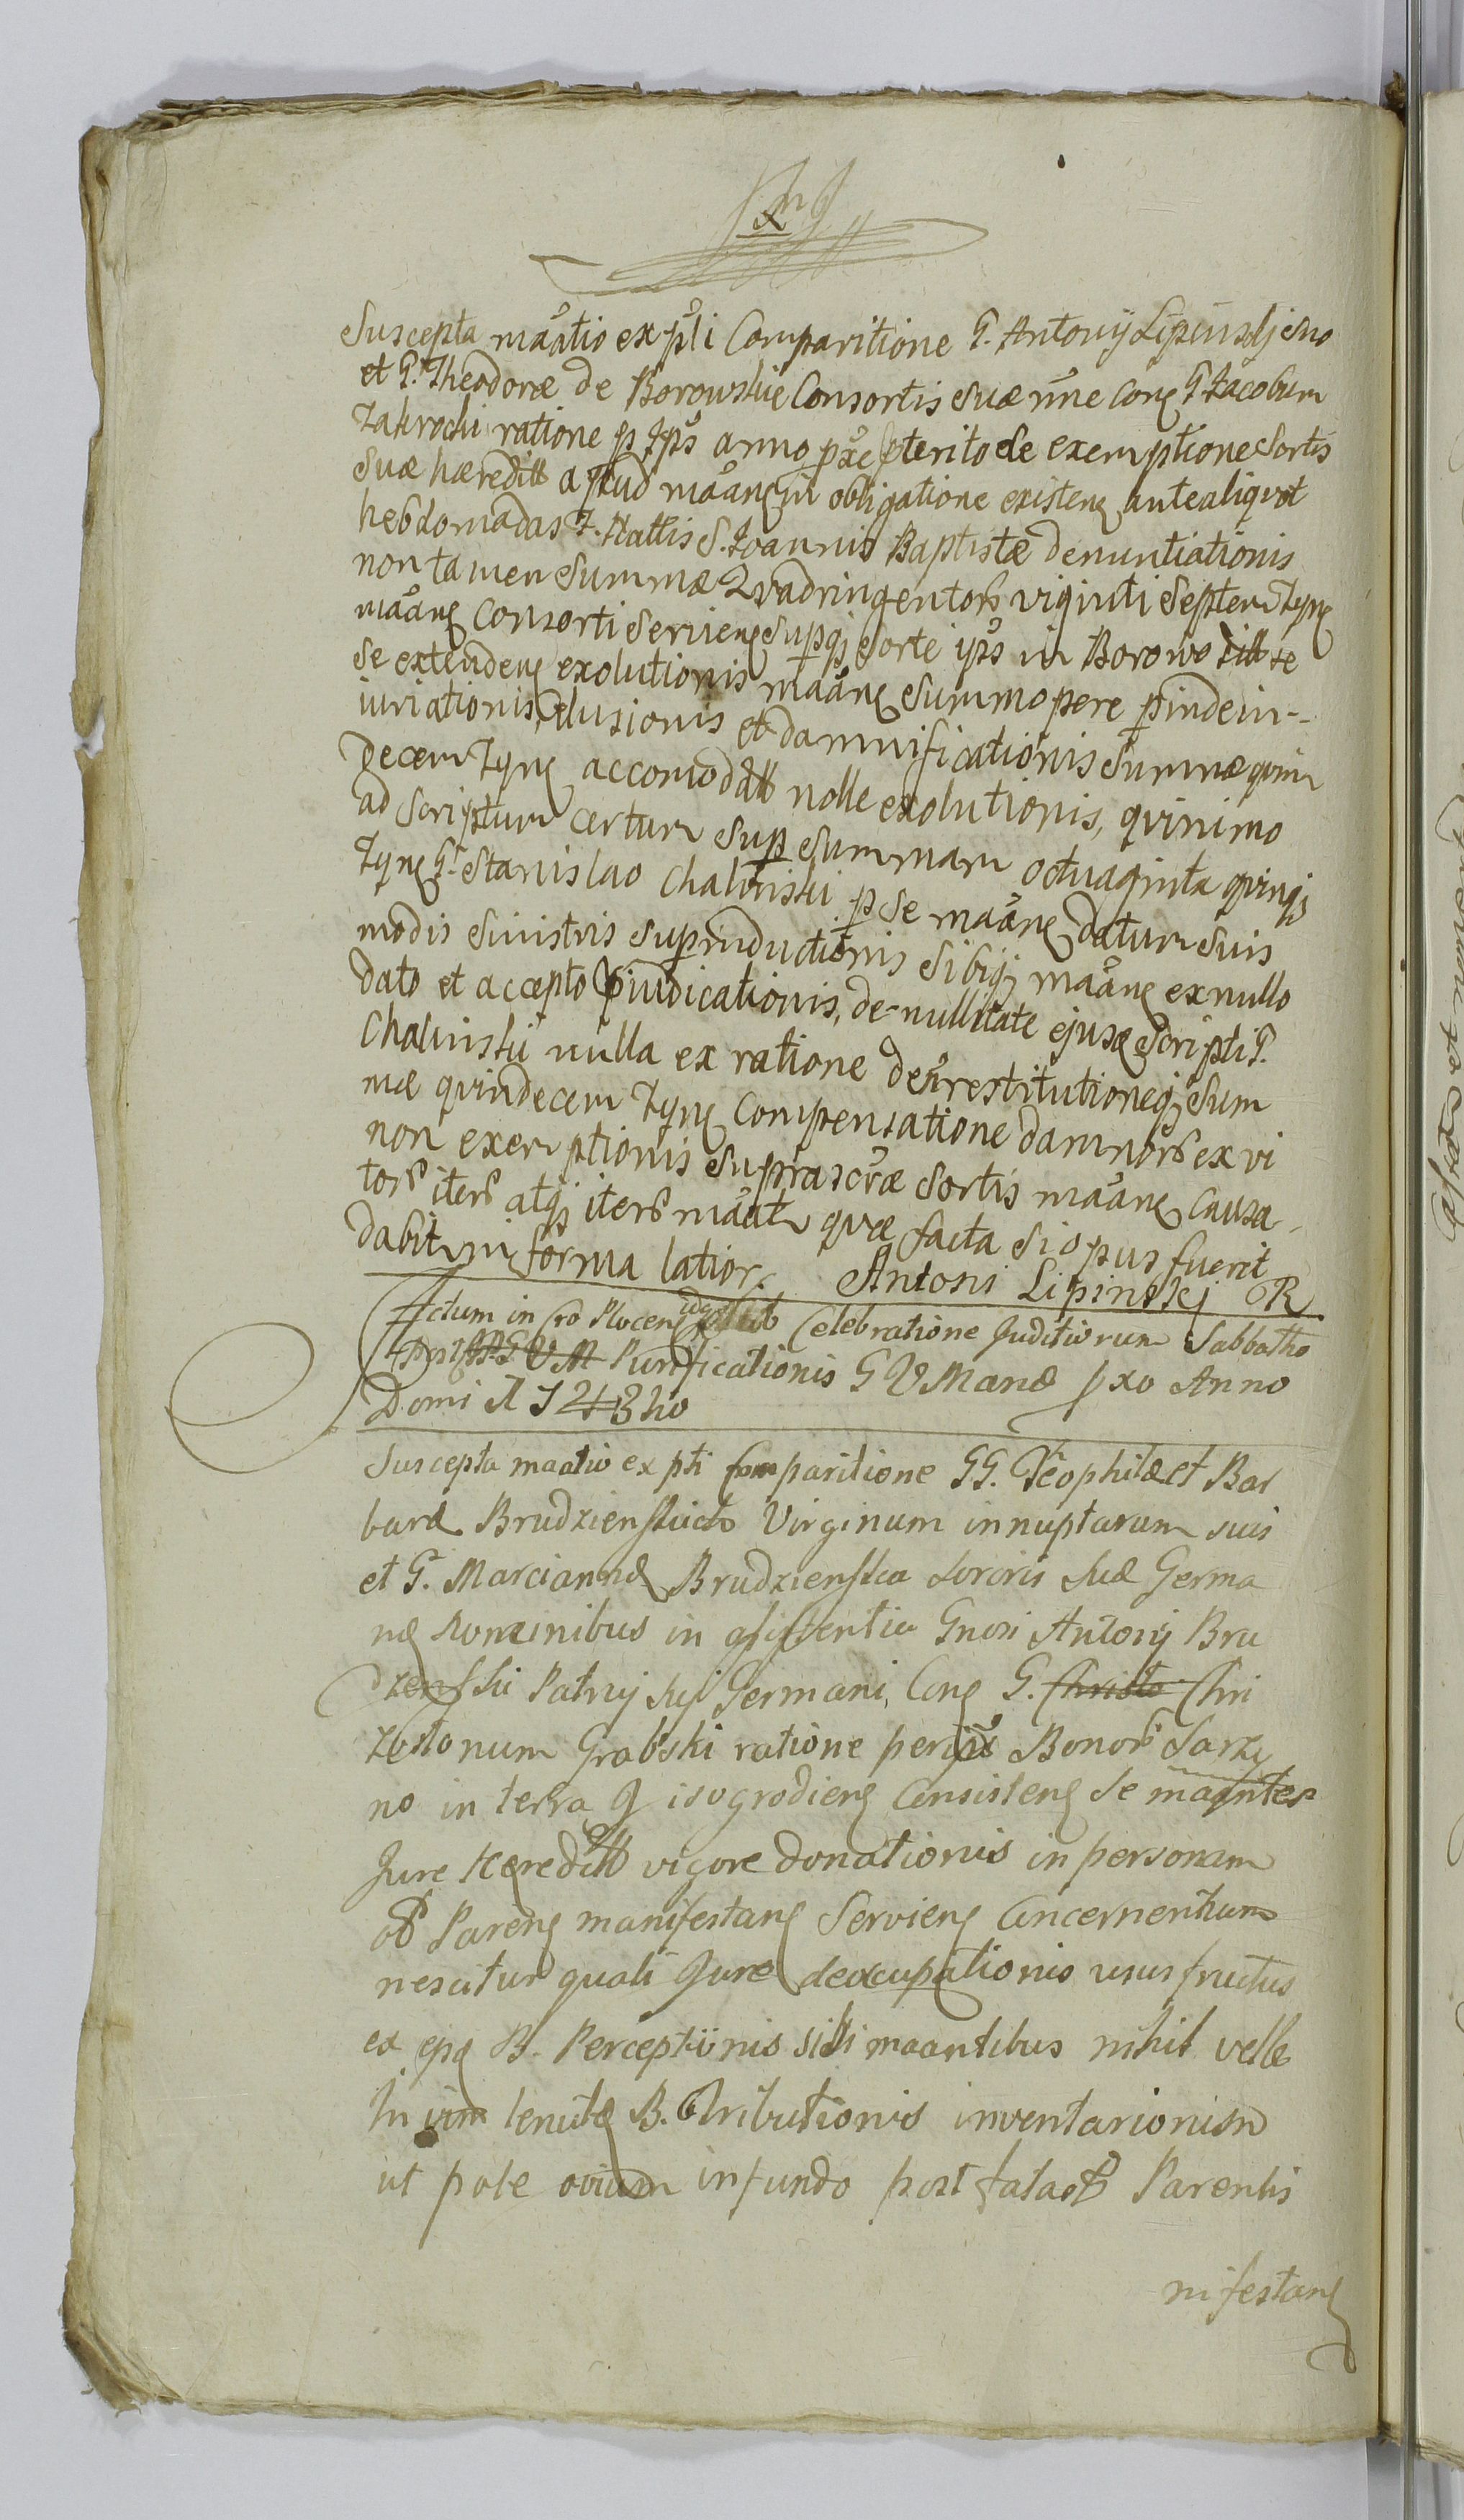 Suscepta maatio ex pti Comparitione G. Antonij Lipinskj suo
et G. Theodoræ de Borowskie Consortis suæ nne Cong G Jacobum
Zakrocki ratione p Ips anno præpterito de exemptione Sortis
suæ hæreditt apud maang in obligatione existeng ante aliquot
hebdomadas F. Nattis S. Joannis Baptistæ denuntiationis
non tamen Summæ Qvadringentors viginti septem Tyng
maang Consorti servieng supqj sorte ips in Borowo sitt se
se extendeng exolutionis maang summopere pinde in-
iuriationis, elusionis et damnificationis Summæ qvin
decem Tyng accomodatt nolle exolutionis, qvinimo
ad scriptum certum sup summam octuaginta qvinqj
Tyng G. Stanislao Chalinski p se maang datum suis
modis sinistris superinductionis sibiqj maang ex nullo
dato et accepto piudicationis, de nullitate ejusd scripti G.
Chalinski nulla ex ratione den restitutioneqj Sum
mæ qvindecem Tyng Compensatione damnors ex vi
non exemptionis suprascræ Sortis maang causa
tors iters atqj iters maatr qvæ facta si opus fuerit
dabitur in forma latiori. Antoni Lipinskj R
Actum in Cro Plocen sub Celebratione Juditiorum Sabbatho
Post Purificationis G V Mariæ pxo Anno
Domi M 743tio
Suscepta maatio ex pti Comparitione GG. Teophilæ et Bar
baræ Brudzienskich Virginum innuptarum suis
et G. Mariannæ Brudzienska sororis suæ Germa
næ nominibus in assistentia Gnosi Antonij Bru
dzenski Patruj suj Germani, Cong G. Christo Chri
zostonum Grabski ratione per Bonors Sarzy
no in terra Wisogrodieng Consisteng se maantes
Jure Hæreditt vigore donationis in personam
ol Pareng manifestang Servieng Concernentium
nescitur quali Jure deoccupationis ususfructus
ex epd B. Perceptionis sibi maantibus nihil velle
In vim tenutæ B. Attributionis inventarionism
ut pote ovium in fundo post fata ol Parentis
nifestang